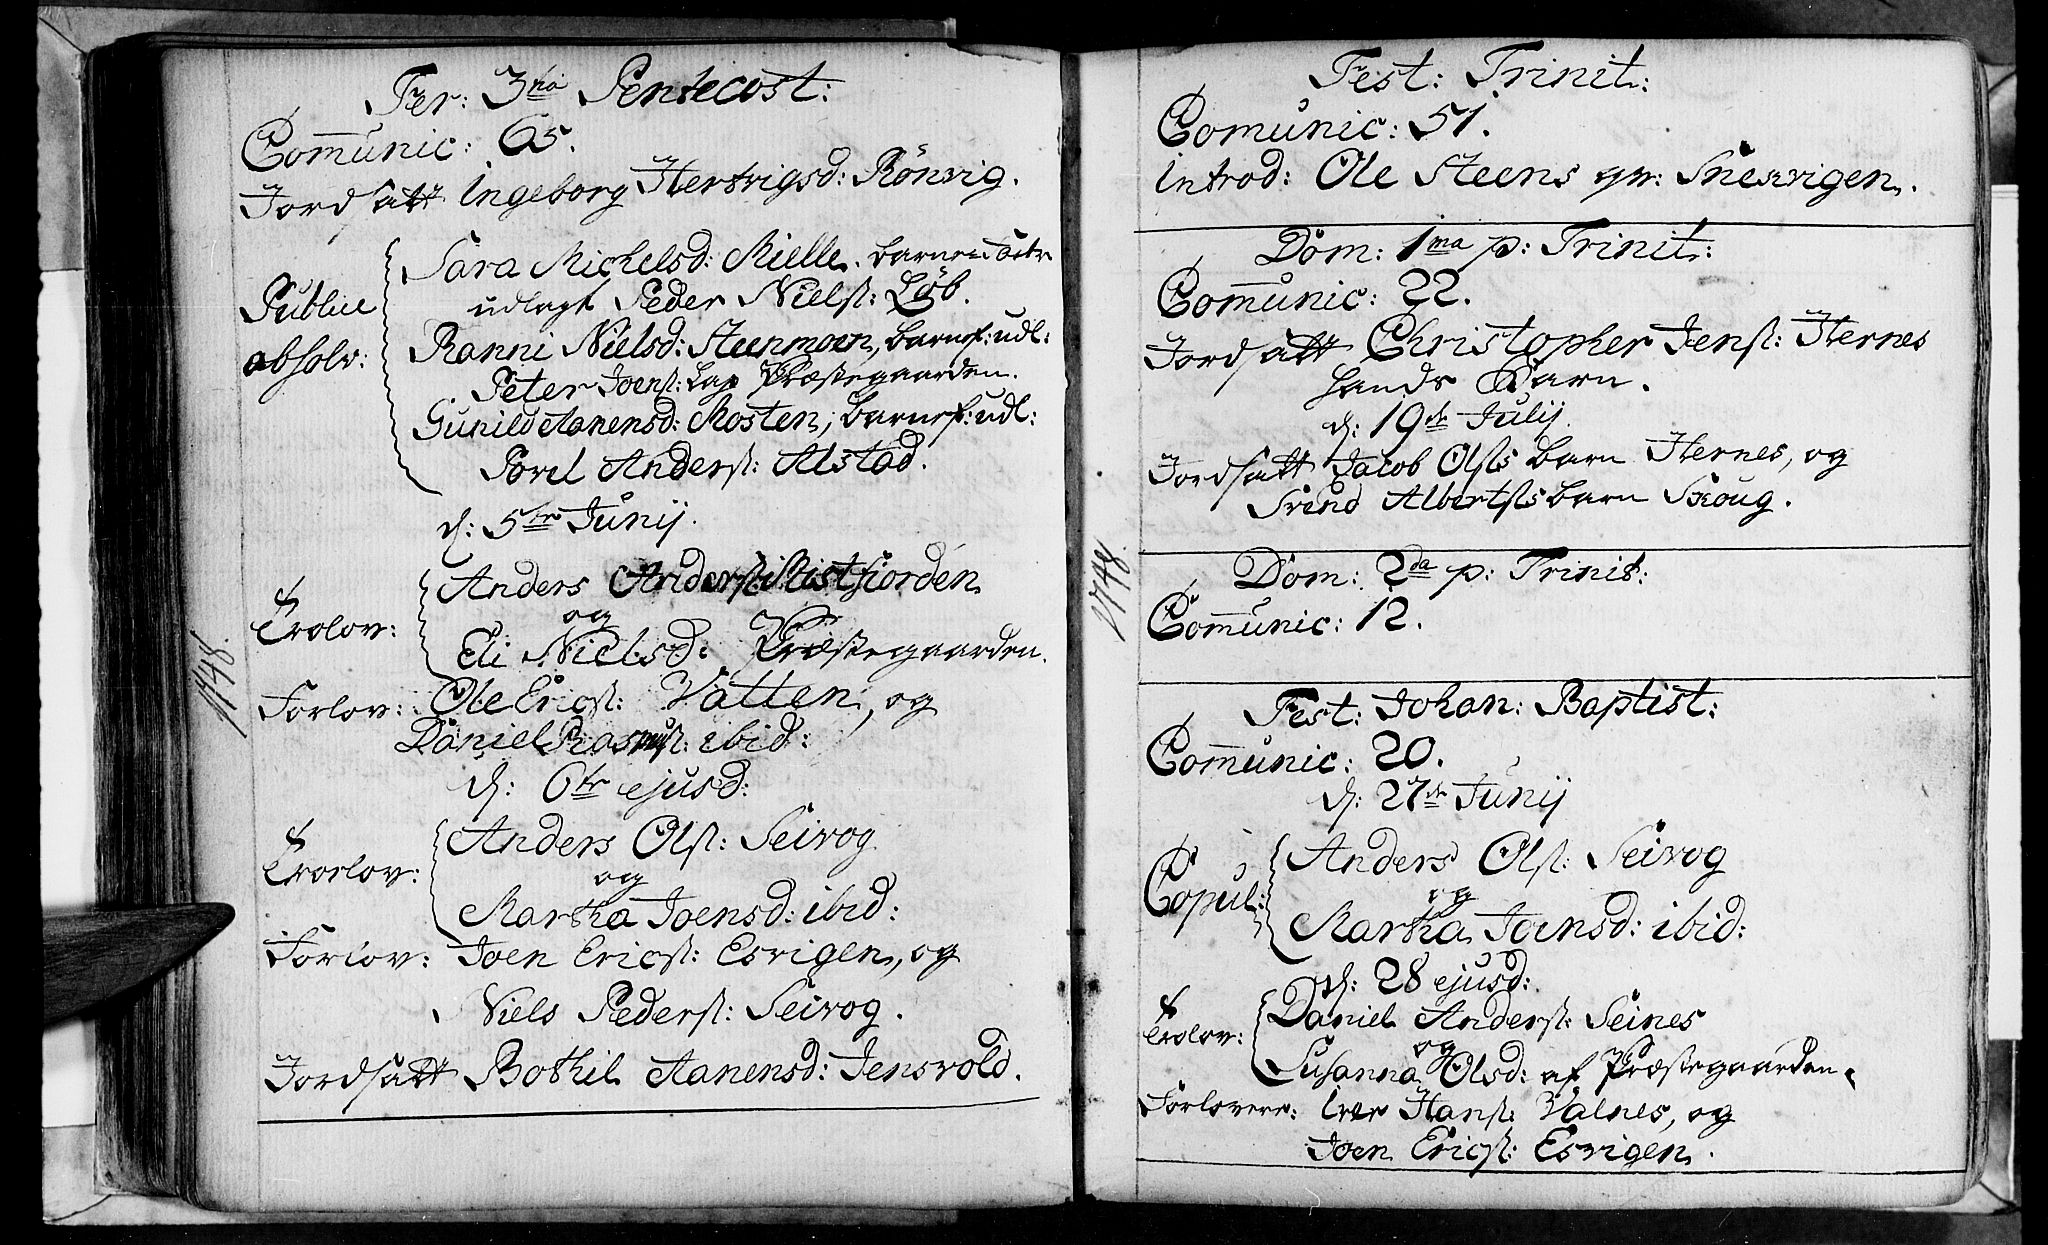 Fer: 3tia Pentecost:
Com̄unic: 65.
Jordsatt Ingeborg Hertvigsd: Rönvig.
Sara Michelsd: Mielle. barnefader
Public udlagt Peder Nielss: Løb.
absolv: Ranni Nielsd: Steenmoen, barnef: udl:
Peter Joenss: Lap Præstegaarden.
Gunild Aanensd: Mosten, barnef: udl:
Povel Anderss: Alstad.
d: 5te Junij.
1748.
Trolov: Anders Anderss: Mistfiorden
og
Eli Nielsd: Præstegaarden.
Forlov: Ole Ericss: Vatten, og
Daniel Rasmuss: ibid:
d: 6te ejusd:
Trorlov: Anders Olss: Seivog
og
Martha Joensd: ibid:
Forlov: Joen Ericss: Esvigen, og
Niels Pederss: Seivog.
Jordsatt Bothil Aanensd: Jensvold.
Fest: Trinit:
Comunic: 51.
introd: Ole Steens qv: Snexvigen.
Dom: 1ma p: Trinit:
Com̄unic: 22.
Jordsatt Christopher Jenss: Hernes
hands Barn.
d: 19de Julij.
Jordsatt Jacob Olss barn Hernes, og
Svend Albertss barn Skoug.
1748.
Dom: 2da p: Trinit:
Com̄unic: 12.
Fest: Johan: Baptist:
Com̄unic: 20.
d: 27de Junij
Copul: Anders Olss: Seivog
og
Martha Joensd: ibid:
d: 28 ejusd:
Trolov: Daniel Anderss: Seines
og
Susanna Olsd: af Præstegaarden.
Forlovere: Iver Hanss: Valnes, og
Joen Ericss: Esvigen.